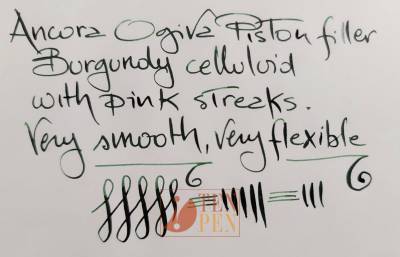 Ancora Ogiva Piston filler
Burgundy celluloid
with pink streaks.
Very smooth, very flexible
TEN
PEN